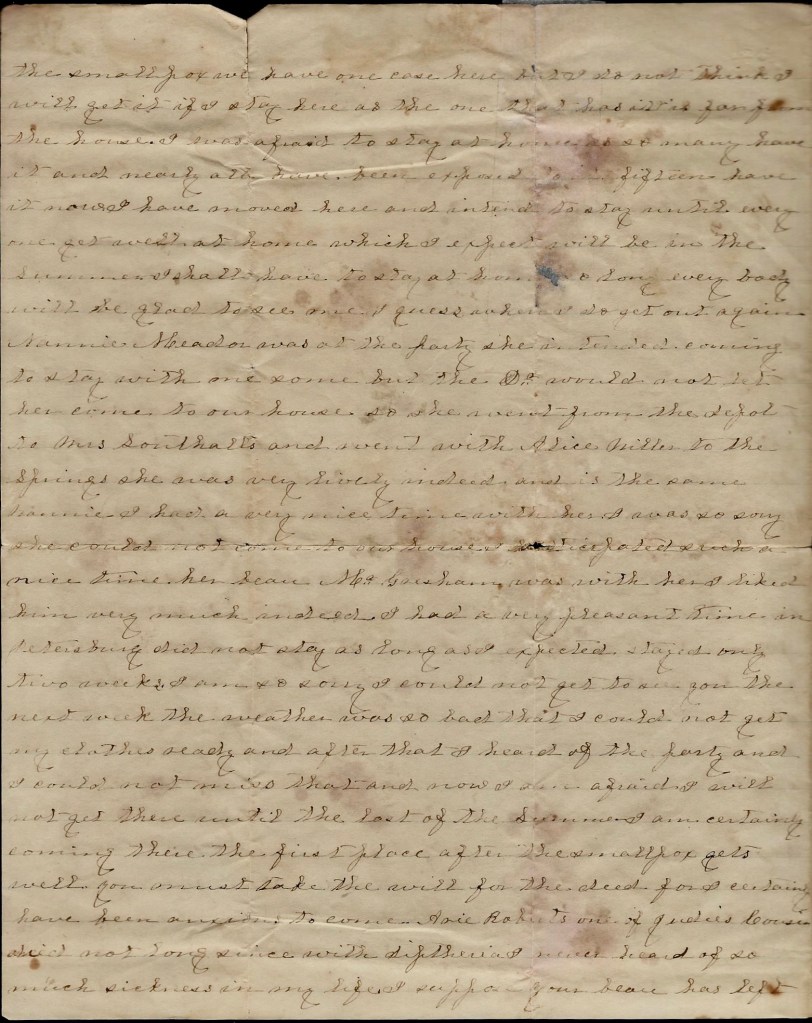 the smallpox we have one case here but I do not think I
will get it if I stay here as the one that has it is far from
the house. I was afraid to stay at home as so many have
it and nearly all have been exposed fifteen have
it now. I have moved here and intend to stay until every
one get well at home which I expect will be in the
Summer I shall have to stay at home so long every body
will be glad to see me I guess when I do get out again
Nannie Meador was at the party she intended coming
to stay with me some but the Dr. would not let
her come to our house so she went from the depot
to Mrs Southalls and went with Alice Miller to the
Springs she was very lively indeed and is the same
Nannie I had a very nice time with her I was so sory
she could not come to our house I anticipated such a
nice time her beau Mr. Grisham was with her I liked
him very much indeed. I had a very pleasant time in
Petersburg did not stay as long as I expected stayed only
two weeks. I am so sory I could not get to see you the
next week the weather was so bad that I could not get
my clothes ready and after that I heard of the party and
I could not miss that and now I am afraid I will
not get there until the last of the Summer I am certainly
coming there the first place after the smallpox gets
well you must take the will for the deed for I certainly
have been anxious to come. Avie Roberts one of Judies Cousin
died not long since with diftheria I never heard of so
much sickness in my life I suppose your beau has left